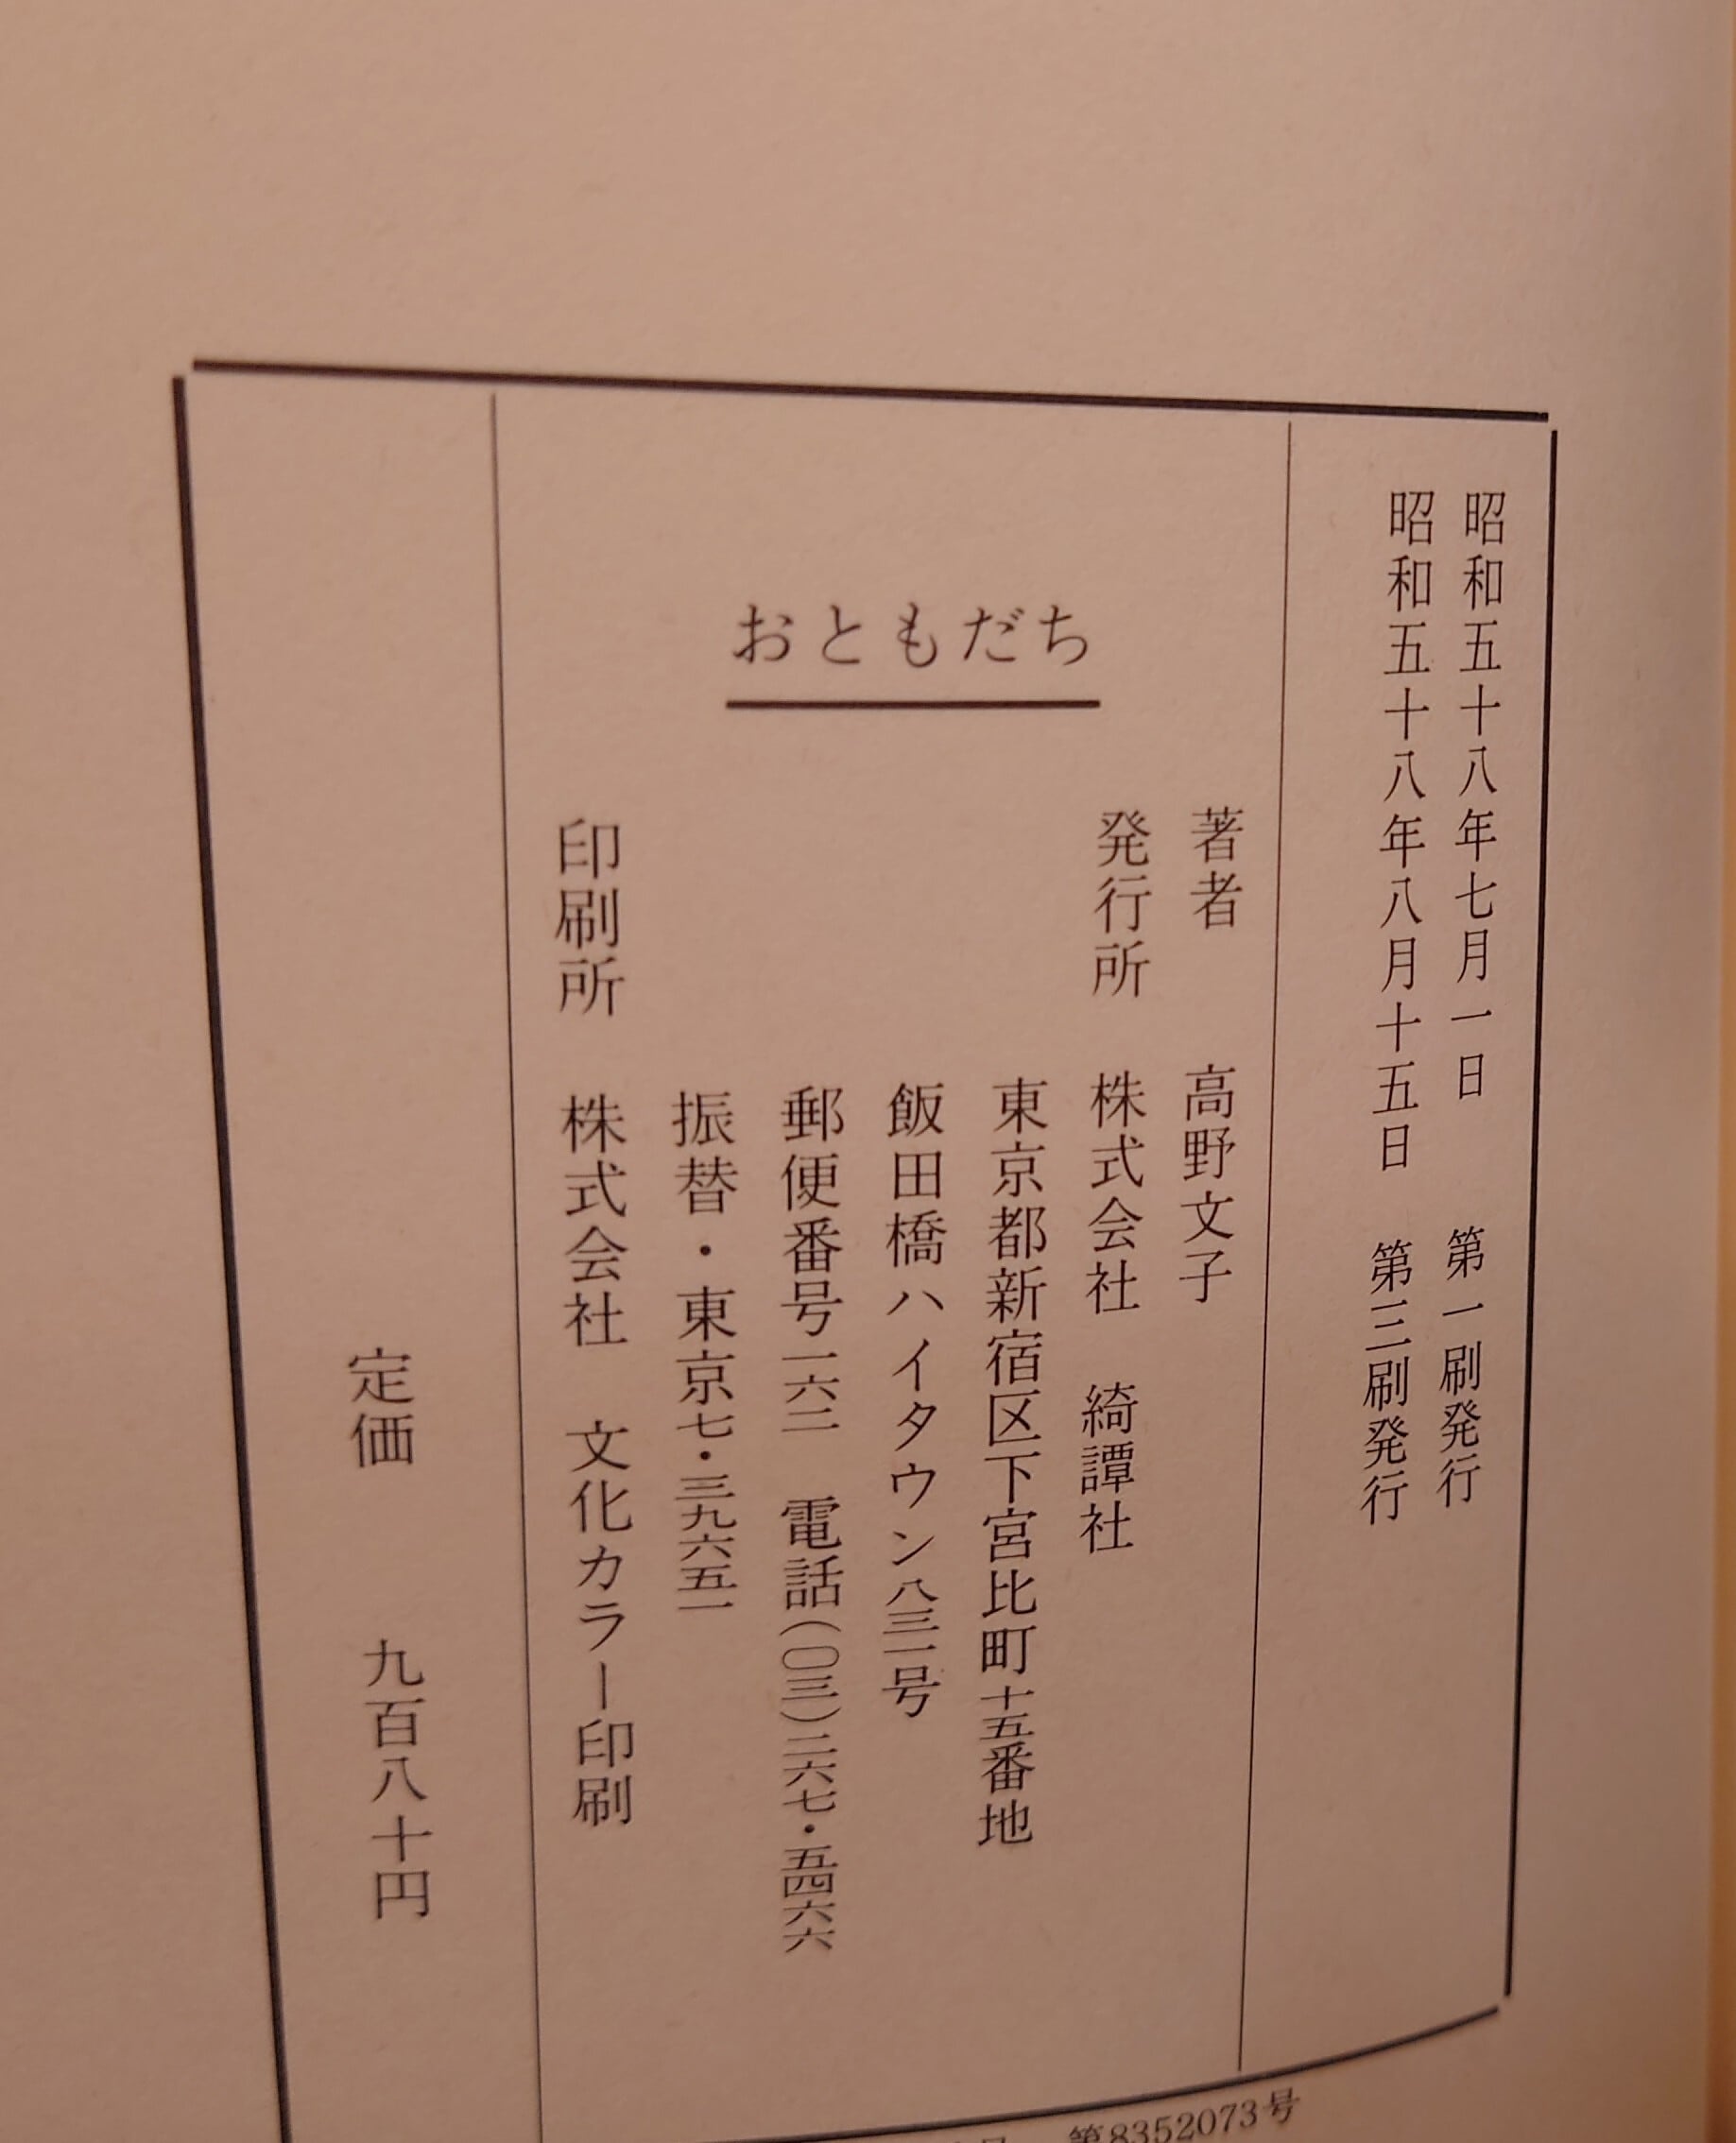 昭和五十八年七月一日　第一刷発行
昭和五十八年八月十五日　第三刷発行
おともだち
著者　高野文子
発行所　株式会社　綺譚社
東京都新宿区下宮比町十五番地
飯田橋ハイタウン八三一号
郵便番号一六二　電話(〇三)二六七・五四六六
振替・東京七・三九六五一
印刷所　株式会社　文化カラー印刷
定価　九百八十円
第8352073号